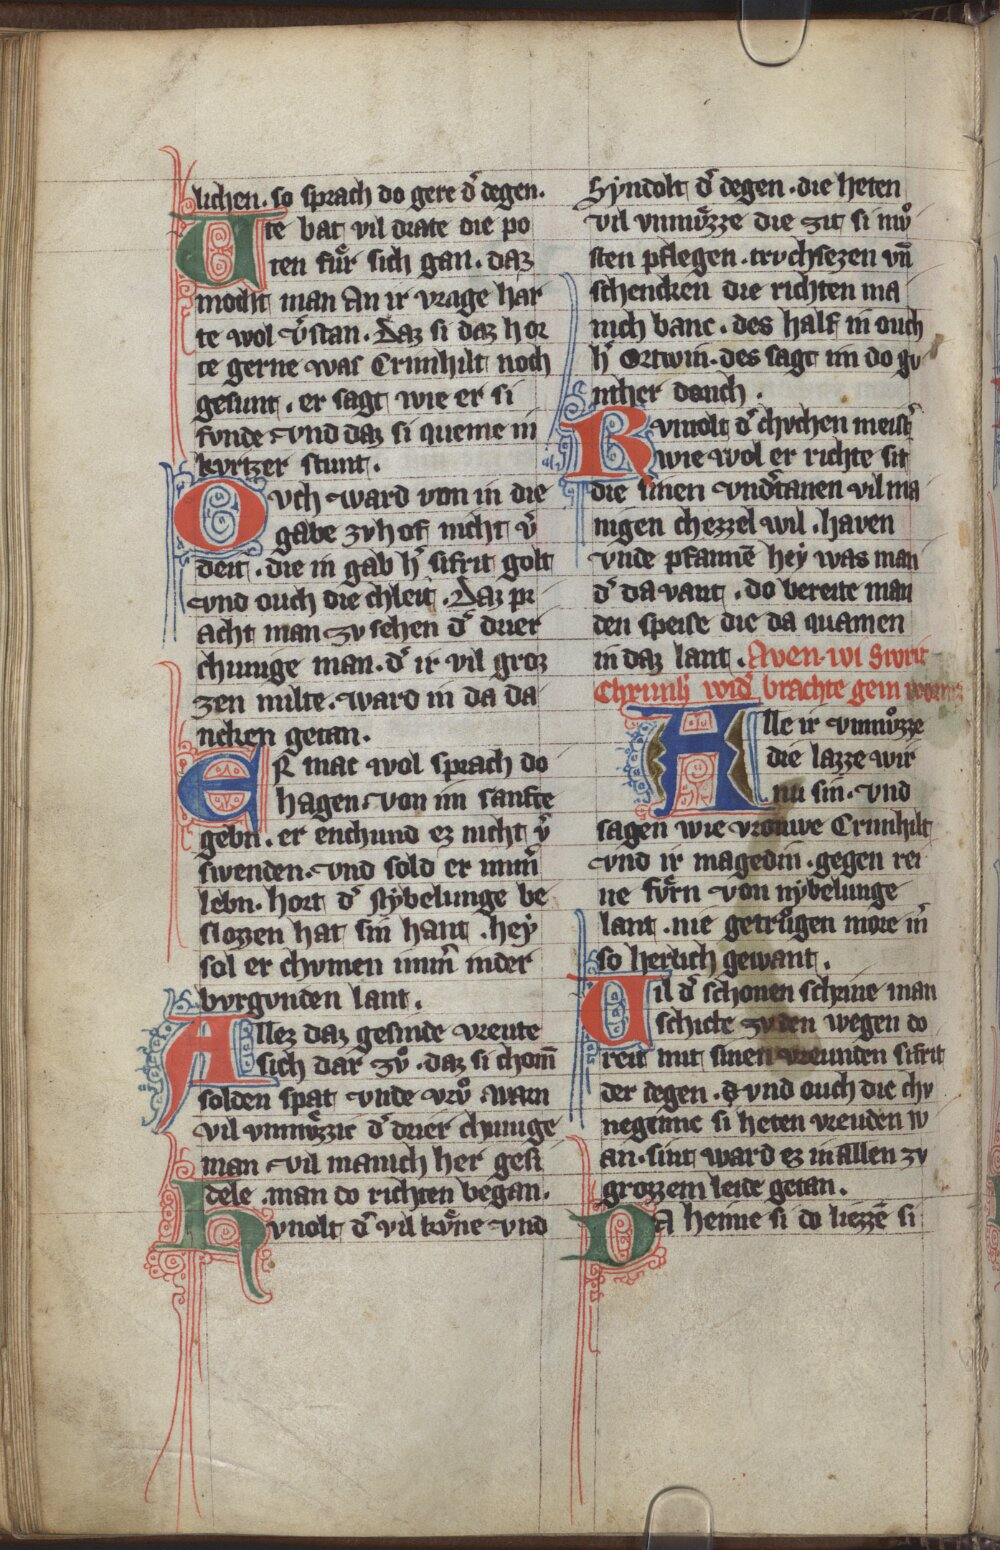 lichen. so sprach do gere d̉ degen.
Ute bat vil drate die po
ten fuͤr sich gan. daz
mocht man An ir vrage har
te wol v̉stan. Daz si daz hor
te gerne waſ Crimhilt noch
gesunt. er sagt wie er si
funde vnd daz si queme in
kvrtzer stunt.
Ovch ward von in die
gabe zv hof nicht v̉
deit. die in gab h̉ sifrit golt
vnd ouch die chleit. Daz pr
acht man zv sehen d̉ drier
chunige man. d̉ ir vil groz
zen milte. ward in da da
ncken getan.
ER mac wol sprach do
hagen von im sanfte
gebn. er enchund ez nicht v̉
swenden. vnd sold er imm̉
lebn. hort d̉ Nybelunge be
slozzen hat sin hant. hey
sol er chvmen imm̉ inder
bvrgvnden lant.
Allez daz gesinde vreute
sich dar zvͦ. daz si chom̄
solden spat vnde vrvͦ. warn
vil vnmvͤzzic d̉ drier chunige
man vil manich her gesi
dele. man do richten began.
Hvnolt d̉ vil kvͤne vnd
Syndolt d̉ degen. die heten
vil vnmuͤzze die zit si mvͦ
sten pflegen. trvchsezen vn̄
schencken die richten ma
nich banc. des half in ouch
h̉ Ortwin. des sagt im do gv
nther danch.
Rvmolt d̉ chvchen meist̉
wie wol er richte sit
die sinen vnd̉tanen vil ma
nigen chezzel wit. haven
vnde pfannē hey was man
d̉ da vant. do bereite man
den speise die da quamen
in daz lant. Aven. wi Sivrit
Chrimh̉ wid̉ brachte gein worms
Alle ir vnmuͦzze
die lazze wir
nu sin. vnd
sagen wie vrouwe Crimhilt
vnd ir magedin. gegen rei
ne fvͤrn von nybelunge
lant. nie getruͦgen more m̉
so herlich gewant.
Vil d̉ schonen schrine man
schicte zv den wegen do
reit mit sinen vreunden sifrit
der degen. vnd ouch die chv
neginne si heten vreuden w
an. sint ward ez in allen zv
grozzem leide getan.
DA heime si do liezzē si